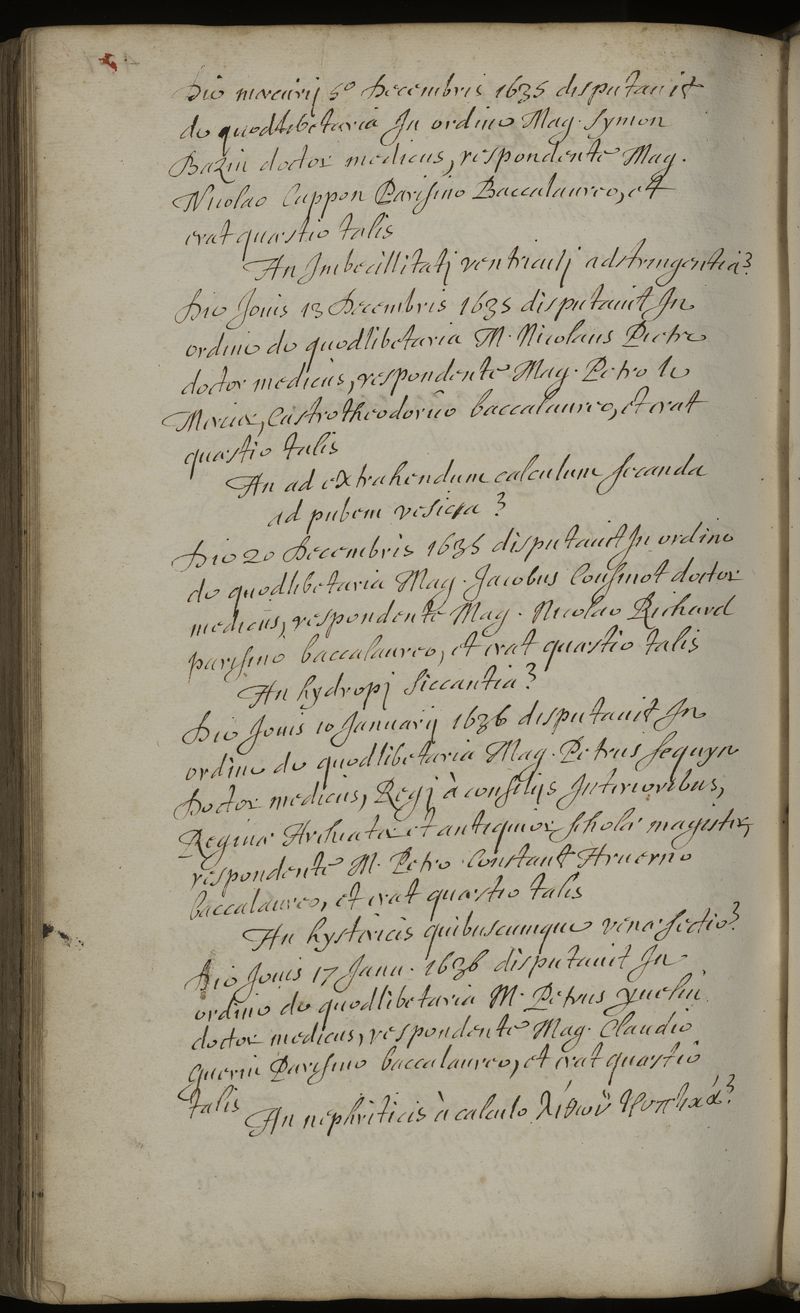 Die mercurij 5º Decembris 1635 disputauit
de quodlibetaria In ordine Mag. Symon
Bazin doctor medicus, respondente Mag.
Nicolao Cappon Parisino Baccalaureo, et
erat quæstio talis
An Imbecillitatj ventriculj adstringentia?
Die Jouis 13 Decembris 1635 disputauit In
ordine de quodlibetaria M. Nicolaus Pietre
doctor medicus, respondente Mag. Petro le
Mercier, Castrotheodorico baccalaureo, et erat
quæstio talis
An ad extrahendum calculum secanda
ad pubem vesica ?
Die 20 Decembris 1635 disputauit In ordine
de quodlibetaria Mag. Jacobus Cousinot doctor
medicus, respondente Mag. Nicolao Richard
parisino baccalaureo, et erat quæstio talis
An hydropj siccantia ?
Die Jouis 10 Januarij 1636 disputauit In
ordine de quodlibetaria Mag. Petrus Seguyn
Doctor medicus, Regj à consilijs Interioribus,
Reginæ Archiater et antiquior scholæ magister,
respondente M. Petro Constant Aruerno
baccalaureo, et erat quæstio talis
An hystericis quibuscumque venæ sectio?
Die Jouis 17 Janu. 1636 disputauit In
ordine de quodlibetaria M. Petrus yuelin
doctor medicus, respondente Mag. Claudio
guerin Parisino baccalaureo, et erat quæstio
talis
An nephriticis à calculo